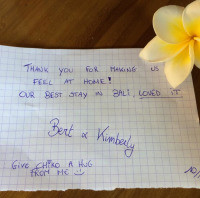 THANK YOU FOR MAKING US
FEEL AT HOME!
OUR BEST STAY IN BALI, LOVED IT
Bert & Kimberly
GIVE CHIKO A HUG
FROM ME
10/